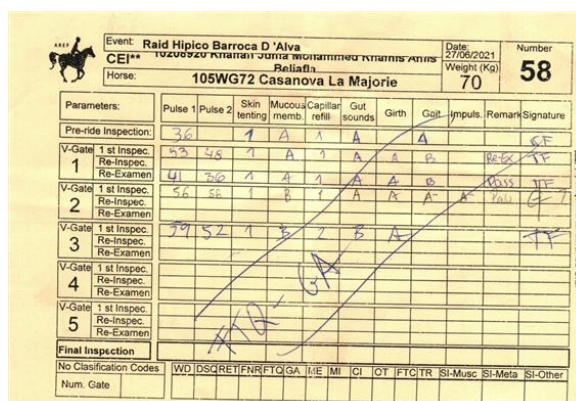 AREP
Event: Raid Hipico Barroca D 'Alva
Date: 27/06/2021
Number
CEI** 10208920 Khalfan Juma Mohammed Khamis Anis Beljafla
Weight (Kg) 70
58
Horse: 105WG72 Casanova La Majorie
Parameters: Pulse 1 Pulse 2 Skin tenting Mucous memb. Capillar refill Gut sounds Girth Gait Impuls. Remark Signature
Pre-ride Inspection: 36 1 A 1 A A
V-Gate 1 1 st Inspec. 53 48 1 A 1 A A B Re-Ex TF
Re-Inspec.
Re-Examen 41 36 1 A 1 A A B Pass TF
V-Gate 2 1 st Inspec. 56 56 1 B 1 A A A- A-
Re-Inspec.
Re-Examen
V-Gate 3 1 st Inspec. 59 52 1 B 2 B A TF
Re-Inspec.
Re-Examen
FTQ - GA
V-Gate 4 1 st Inspec.
Re-Inspec.
Re-Examen
V-Gate 5 1 st Inspec.
Re-Inspec.
Re-Examen
Final Inspection
No Clasification Codes WD DSQ RET FNR FTQ GA ME MI CI OT FTC TR SI-Musc SI-Meta SI-Other
Num. Gate